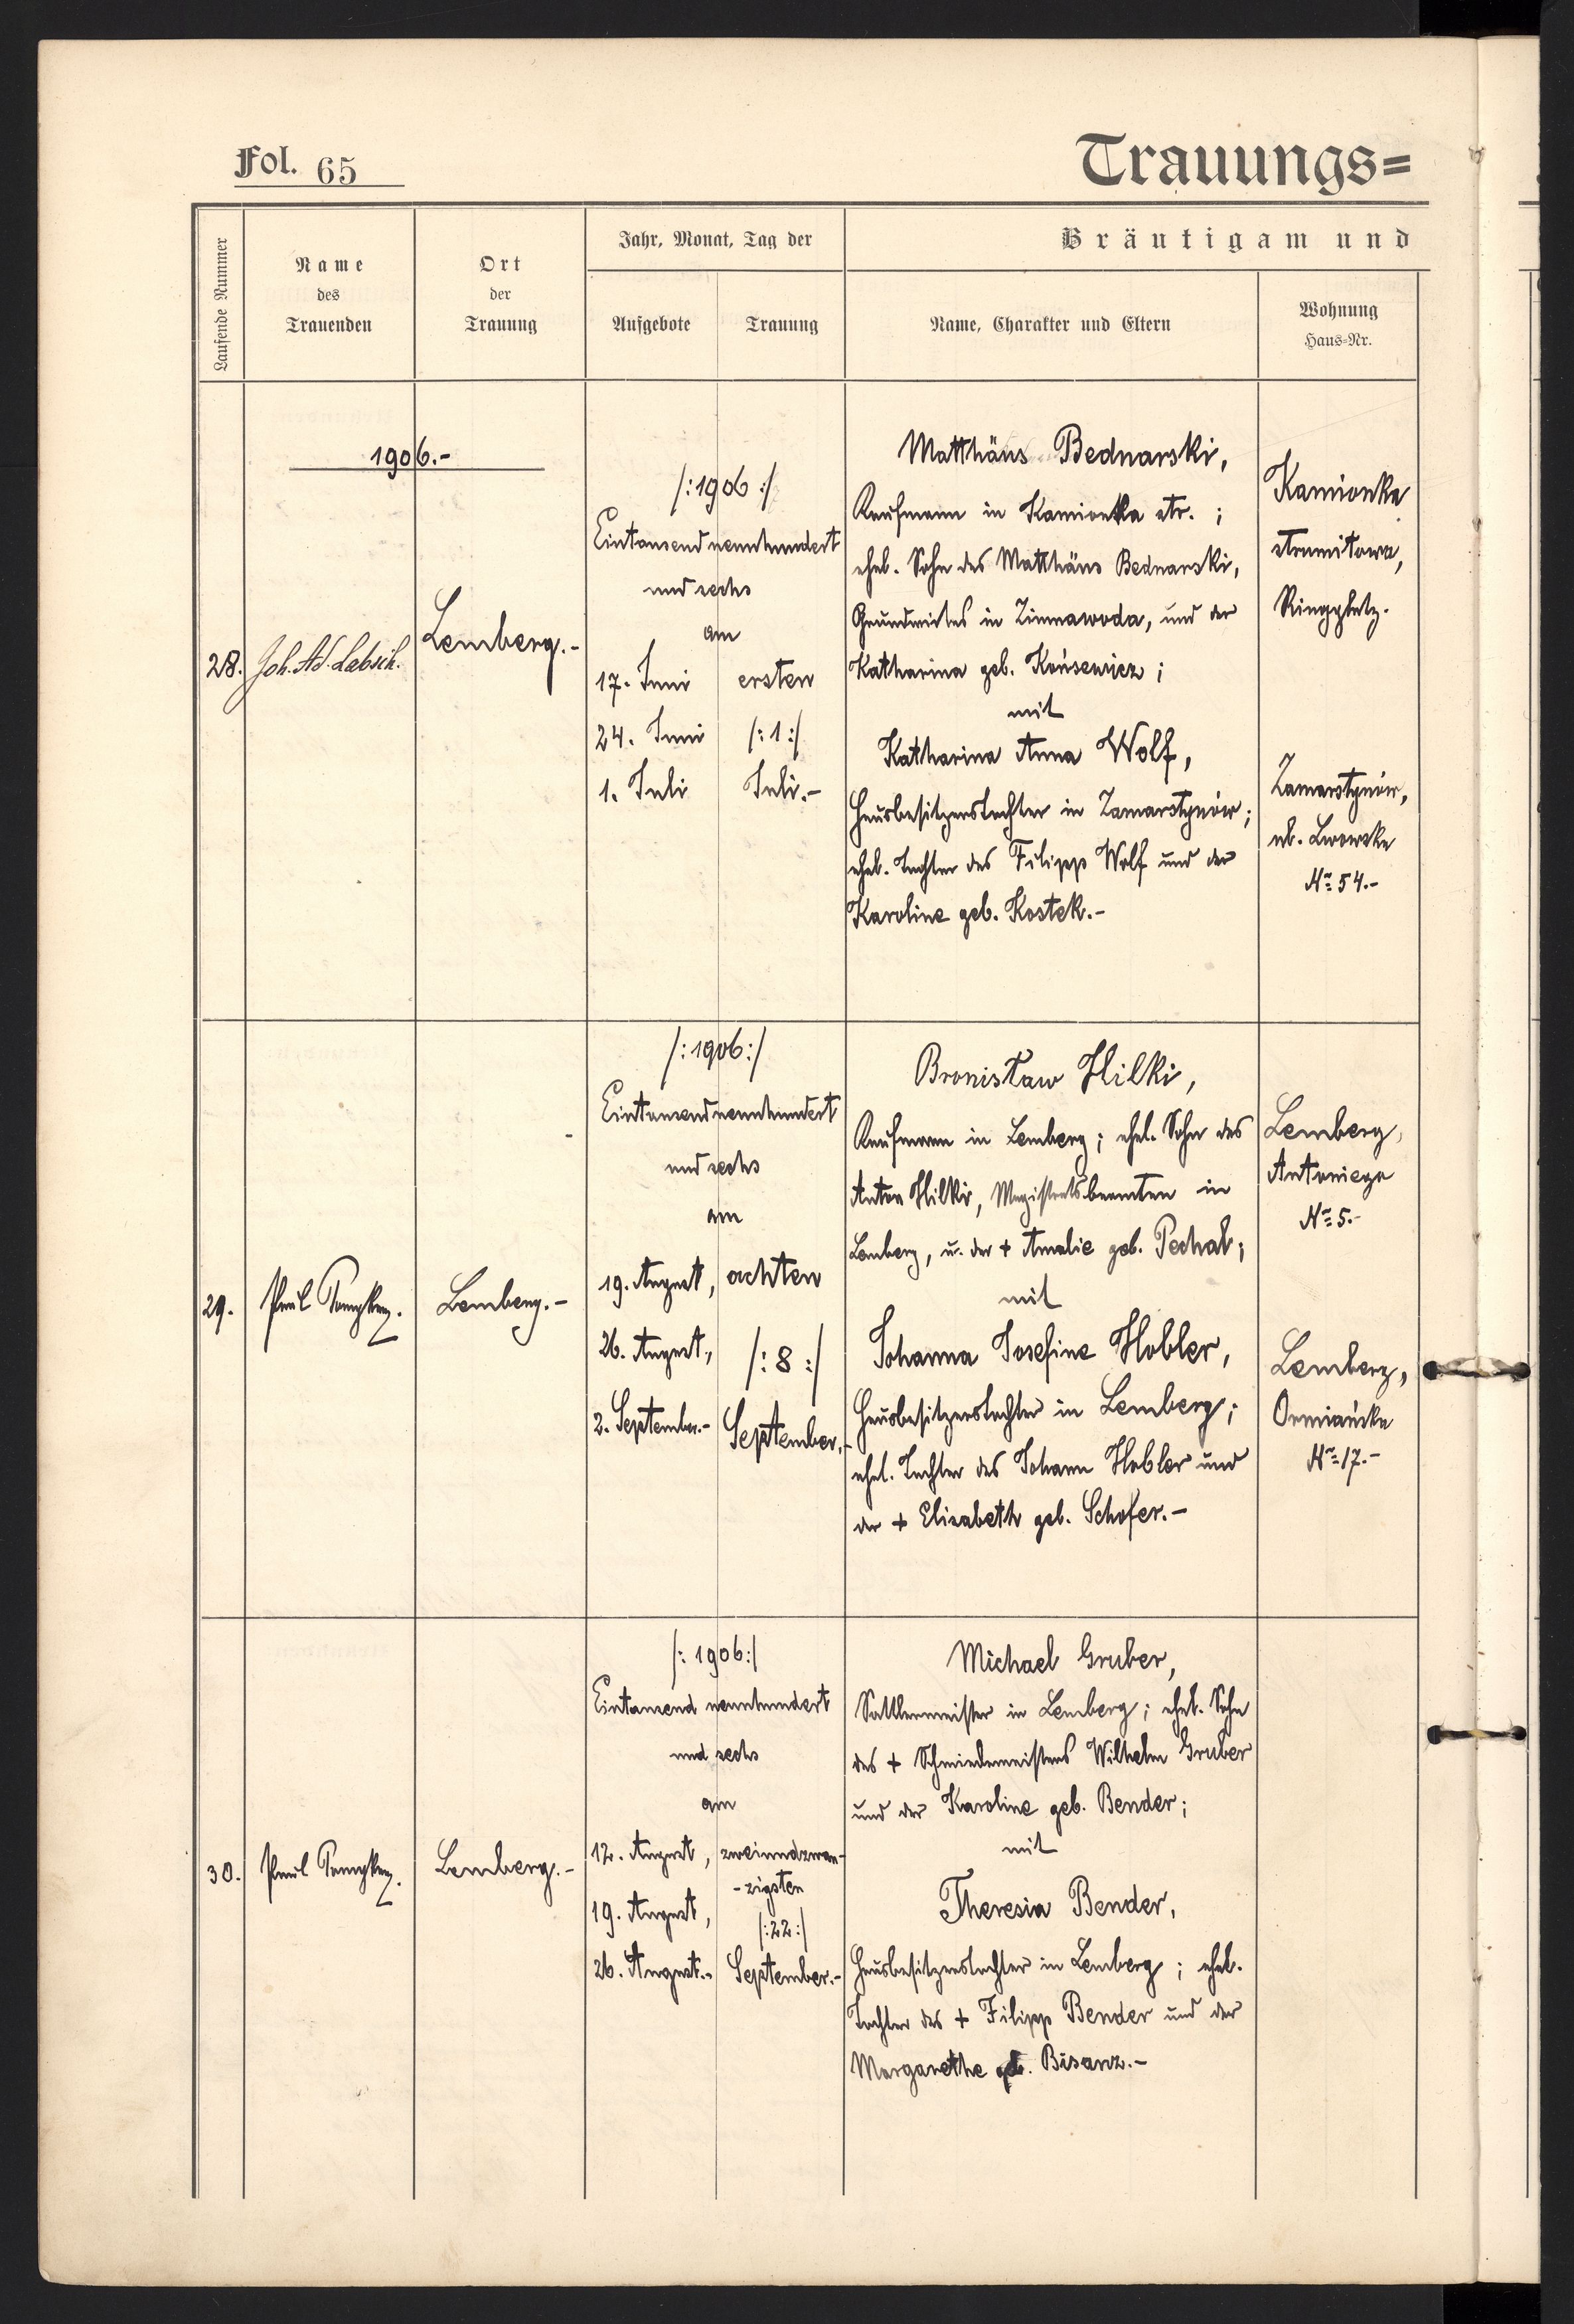 Fol. 65
Trauungs=
Laufende Nummer
Name
des
Trauenden
Ort
der
Trauung
Jahr, Monat, Tag der
Aufgebote
Trauung
Bräutigam und
Name, Charakter und Eltern
Wohnung
Haus-Nr.
1906.-
28.
Joh. Ad. Labsik.
Lemberg.-
/:1906:/
Eintausendneunhundert
und sechs
am
17. Juni
24. Juni
1. Juli
ersten
/:1:/
Juli.-
Matthäus Bednarski,
Kaufmann in Kamionka str. ;
ehel. Sohn des Matthäus Bednarski,
Grundwirtes in Zimnawoda, und der
Katharina geb. ;
mit
Katharina Anna Wolf,
Hausbesitzerstochter in Zamarstynów;
ehel. Tochter des Filipp Wolf und der
Karoline geb. Kostek.-
Kamionka
strumiłowa,
Ringplatz.
Zamarstynów,
ul. Lwowska
Nr. 54.-
29.
Paul
Lemberg.-
/:1906:/
Eintausendneunhundert
und sechs
am
19. August,
26. August,
2. September.-
achten
/:8:/
September.-
Bronisław Hilki,
Kaufmann in Lemberg; ehel. Sohn des
Anton Hilki, Magistratsbeamten in
Lemberg, u. der + Amalie geb. ;
mit
Johanna Josefine Hobler,
Hausbesitzerstochter in Lemberg;
ehel. Tochter des Johann Hobler und
der + Elisabeth geb. Schofer.-
Lemberg,
Antoniego
Nr. 5.-
Lemberg,
Ormiańska
Nr. 17.-
30.
Paul
Lemberg.-
/:1906:/
Eintausend neunhundert
und sechs
am
12. August,
19. August,
26. August.-
zweiundzwan-
-zigsten
/:22:/
September.-
Michael Gruber,
Sattlermeister in Lemberg; ehel. Sohn
des + Schmiedemeisters Wilhelm Gruber
und der Karoline geb. Bender;
mit
Theresia Bender,
Hausbesitzerstochter in Lemberg; ehel.
Tochter des + Filipp Bender und der
Margarethe geb. Bisanz.-